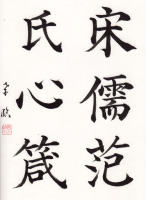 宋儒范
氏心箴